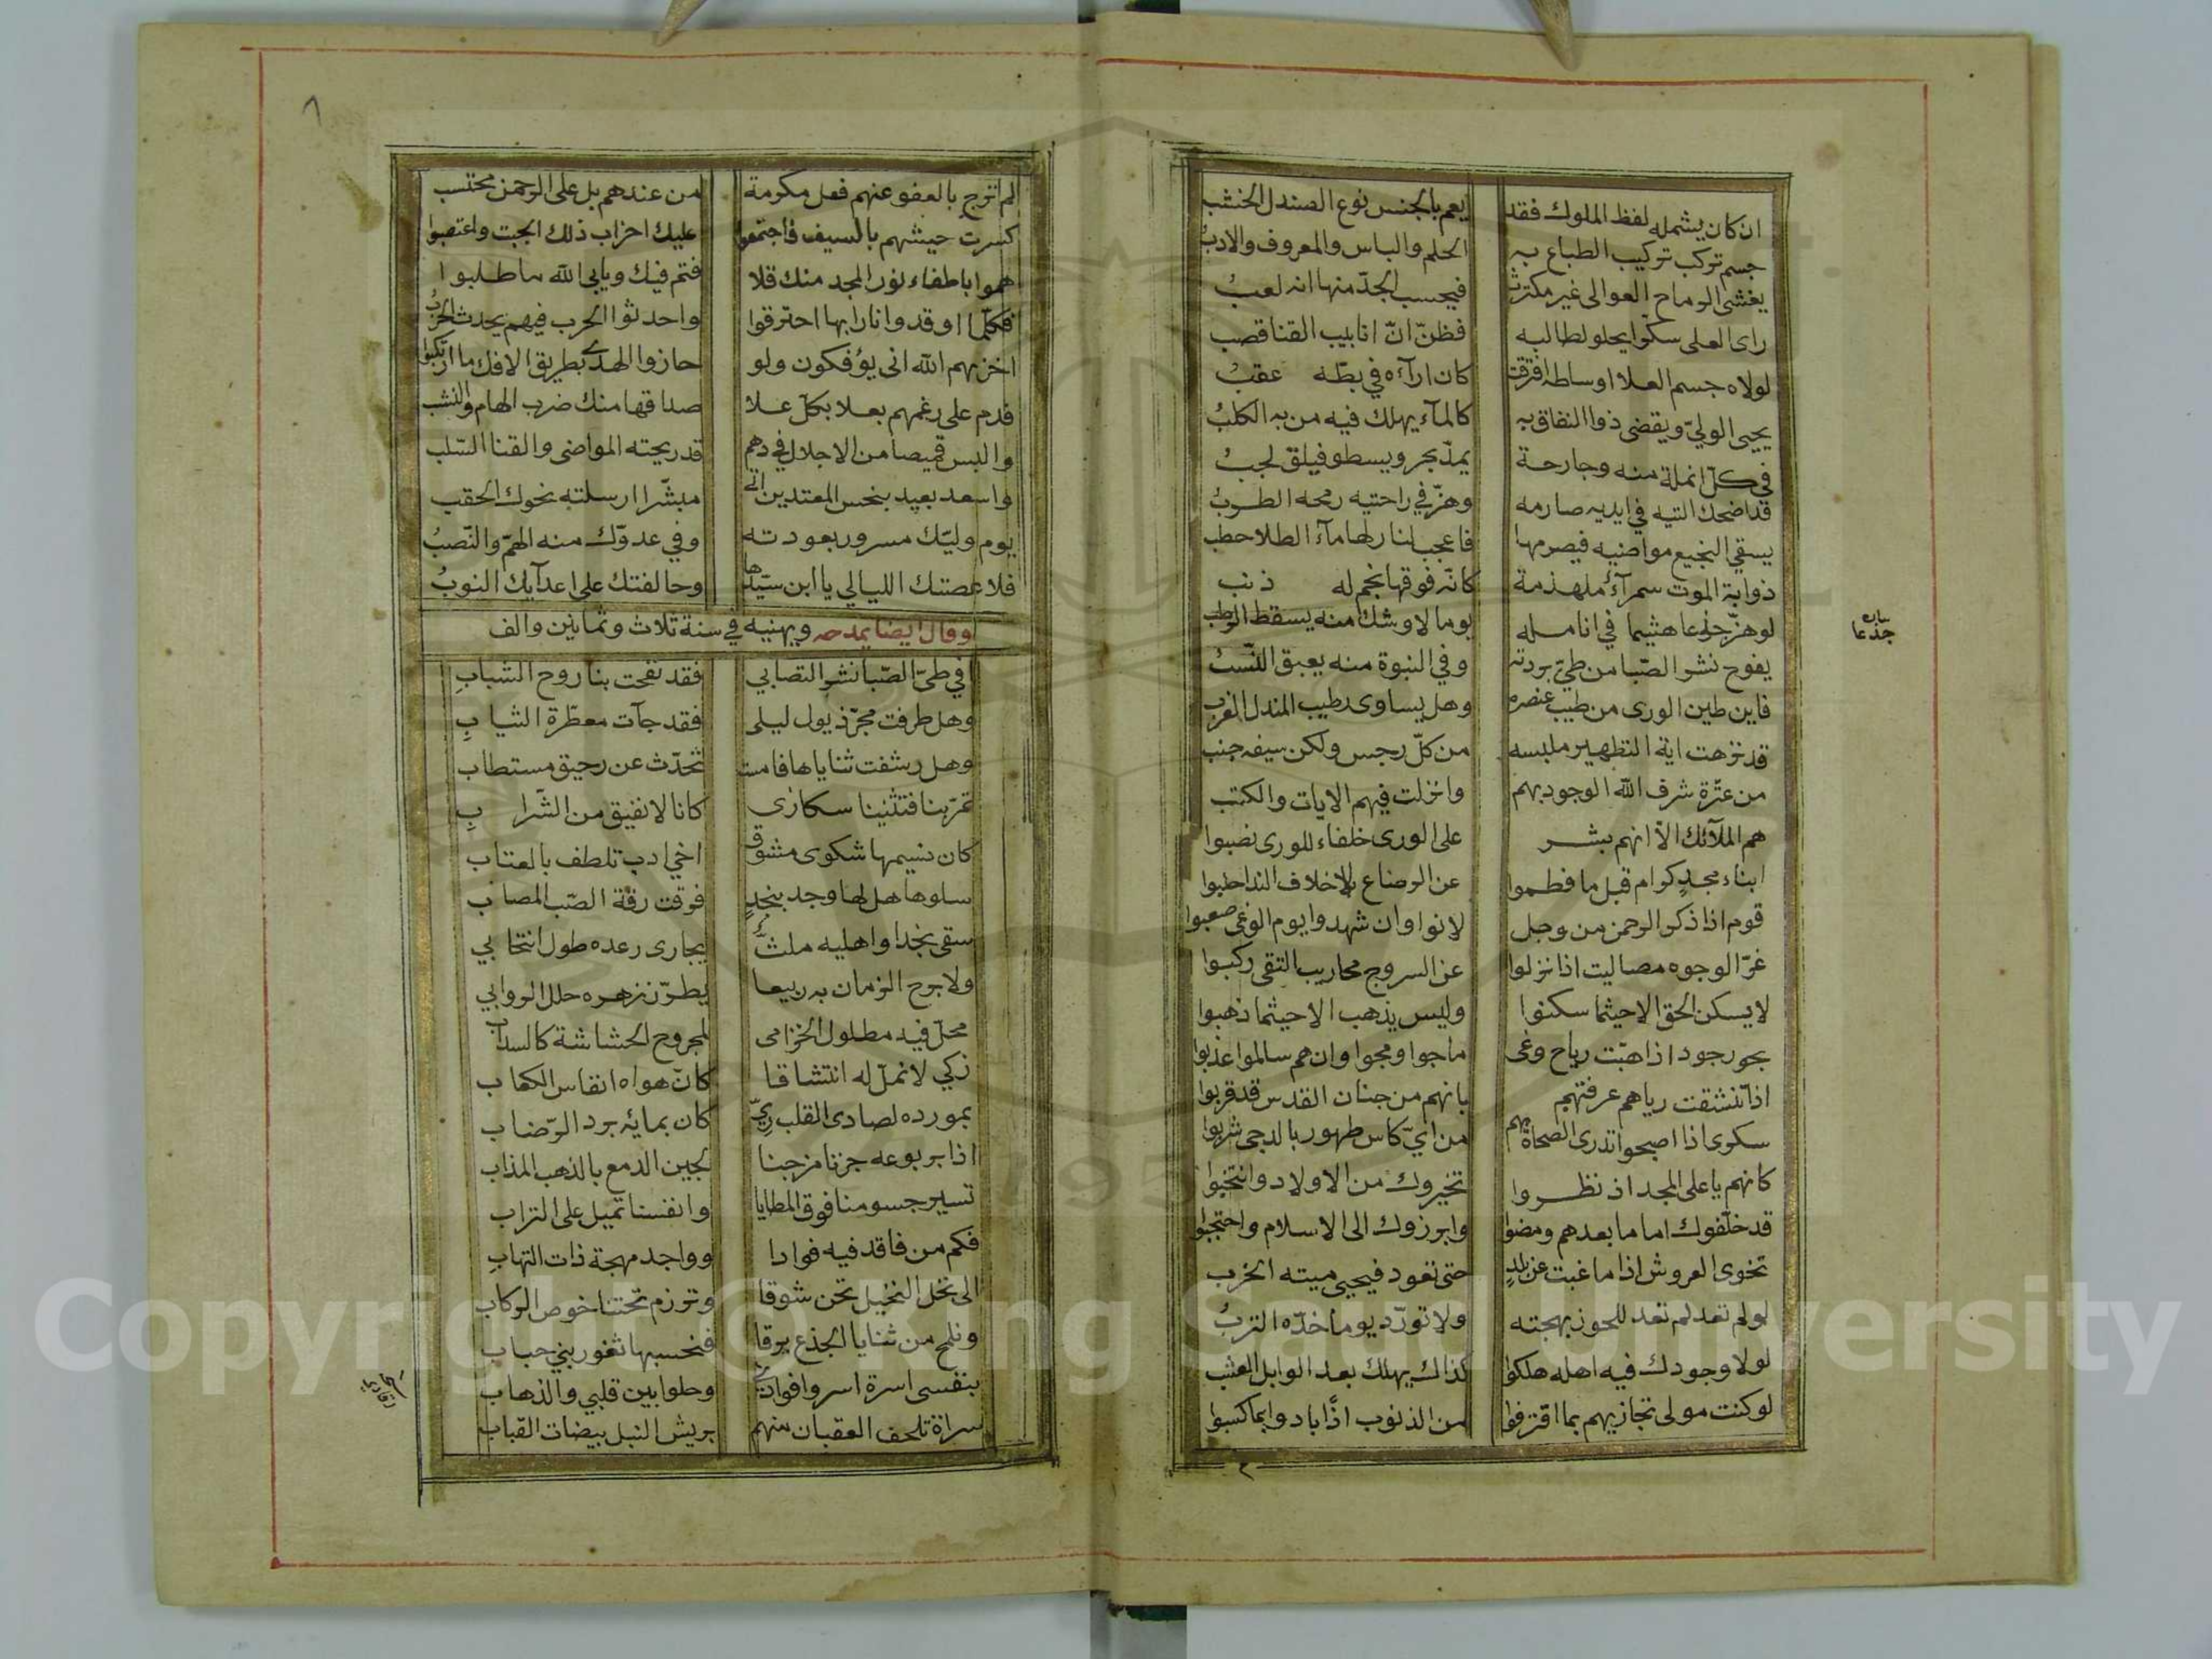 ان كان يشمله لفظ الملوك فقد يعم بالجنس نوع الصندل الخشب
جسم تركب تركيب الطباع به الحلم والباس والمعروف والادب
يغشى الرماح العوالى غير مكترث فيحسب الجدّ منها انه لعب
راى العلى سكّرا يحلو لطالبه فظنّ انّ انابيب القنا قصب
لولاه جسم العلا اوساطه افترقت كان ارآءه في بطّه عقب
يحيى الوليّ ويقضى ذوا النفاق به كالمآء يهلك فيه من به الكلب
في كلّ انملة منه وجارحة يمدّ بحر ويسطو فيلق لجب
قد اضحك التيه في ايديه صارمه وهزّ في راحتيه رمحه الطرب
يسقي النجيع مواضيه فيصرمها فاعجب لنار لها مآء الطلا حطب
ذوابة الموت سمرآء ملهذمة كانّه فوقها نجم له ذنب
لو هزّ جذعا هشيما في انامله يوما لا وشك منه يسقط الرطب
يفوح نشر الصّبا من طيّ بردته وفي النبوة منه يعبق النّسب
فاين طين الورى من طيب عنصره وهل يساوى رطيب المندل الغرب
قد نزهت اية التطهير ملبسه من كلّ رجس ولكن سيفه جنب
من عترة شرف الله الوجود بهم وانزلت فيهم الايات والكتب
هم الملآئك الاّ انهم بشر على الورى خلفاء للورى نصبوا
ابناء مجد كرام قبل ما فطموا عن الرضاع لاخلاف الندا حلبوا
قوم اذا ذكر الرحمن من وجل لانوا وان شهدوا يوم الوغى صعبوا
غرّ الوجوه مصاليت اذا نزلوا عن السروج محاريب التقى ركبوا
لا يسكن الحق الا حيثما سكنوا وليس يذهب الا حيثما ذهبوا
بحور جود اذا هبّت رياح وغى ماجوا ومجوا وان هم سالموا عذبوا
اذا تنشقت رياهم عرفتهم بانهم من جنان القدس قد قربوا
سكرى اذا اصبحوا تدرى الصحاة بهم من ايّ كاس طهور بالدجى شربوا
كانهم يا على المجد اذ نظروا تخيروك من الاولاد وانتخبوا
قد خلّفوك اماما بعدهم ومضوا وابرزوك الى الاسلام واحتجبوا
تخوى العروش اذا ما غبت عن بلد حتى تعود فيحيى ميته الخرب
لو لم تعد لم تعد للحوز بهجته ولا تورّد يوما خدّه الترب
لولا وجودك فيه اهله هلكوا كذاك يهلك بعد الوابل العشب
لو كنت مولى تجازيهم بما اقترفوا من الذنوب اذًا بادوا بما كسبوا
سابه
جذعا
٨
لم ترج بالعفو عنهم فعل مكرمة من عندهم بل على الرحمن محتسب
كسرت جيشهم بالسيف فاجتمعوا عليك احزاب ذلك الجبت واعتصبوا
هموا باطفاء نور المجد منك فلا فتم فيك ويابى الله ما طلبوا
فكلّما اوقدوا نارا بها احترقوا واحدثوا الحرب فيهم يحدث الحرب
اخزيهم الله انى يؤفكون ولو حازوا الهدى بطريق الافك ما ارتكبوا
فدم على رغمهم بعلا بكلّ علا صداقها منك ضرب الهام والنشب
والبس قميصا من الاجلال في دهم قد ريحته المواضى والقنا السّلب
واسعد بعيد بنحس المعتدين اتى مبشّرا ارسلته نحوك الحقب
يوم وليّك مسرور بعودته وفي عدوّك منه الهمّ والنّصب
فلا عصتك الليالي يا ابن سيّدها وحالفتك على اعدآيك النوب
وقال ايضا يمدحه ويهنيه في سنة ثلاث وثمانين والف
في طيّ الصّبا نشر التصابي فقد نفحت بنا روح الشباب
وهل طرفت مجرّ ذيول ليلى فقد جآت معطّرة الثياب
وهل رشفت ثناياها فامست تحدّث عن رحيق مستطاب
تمرّ بنا فتثنينا سكارى كانا لا نفيق من الشّراب
كان نسيمها شكوى مشوق اخي ادب تلطف بالعتاب
سلوها هل لها وجد بنجد فوقت رقة الصّب المصاب
سقى نجدا واهليه ملثّ يجارى رعده طول انتحابي
ولا برح الزمان به ربيعا يطرّز زهره حلل الروابي
محلّ فيه مطلول الخزامى لمجروح الحشاشة كالسداب
زكي لا نملّ له انتشاقا كانّ هواه انفاس الكعاب
بمورده لصادى القلب ريّ كان بمايه برد الرّضاب
اذا بربوعه جزنا مزجنا لجين الدمع بالذهب المذاب
تسير جسومنا فوق المطايا وانفسنا تميل على التراب
فكم من فاقد فيه فوادا وواجد مهجة ذات التهاب
الى نخل النخيل تحن شوقا وترزم تحتنا خوص الركاب
ونلمح من ثنايا الجذع برقا فنحسبها ثغور بني حباب
بنفسى اسرة اسروا فوادي وحلوا بين قلبي والذهاب
سراة تلحف العقبان منهم بريش النبل بيضات القباب